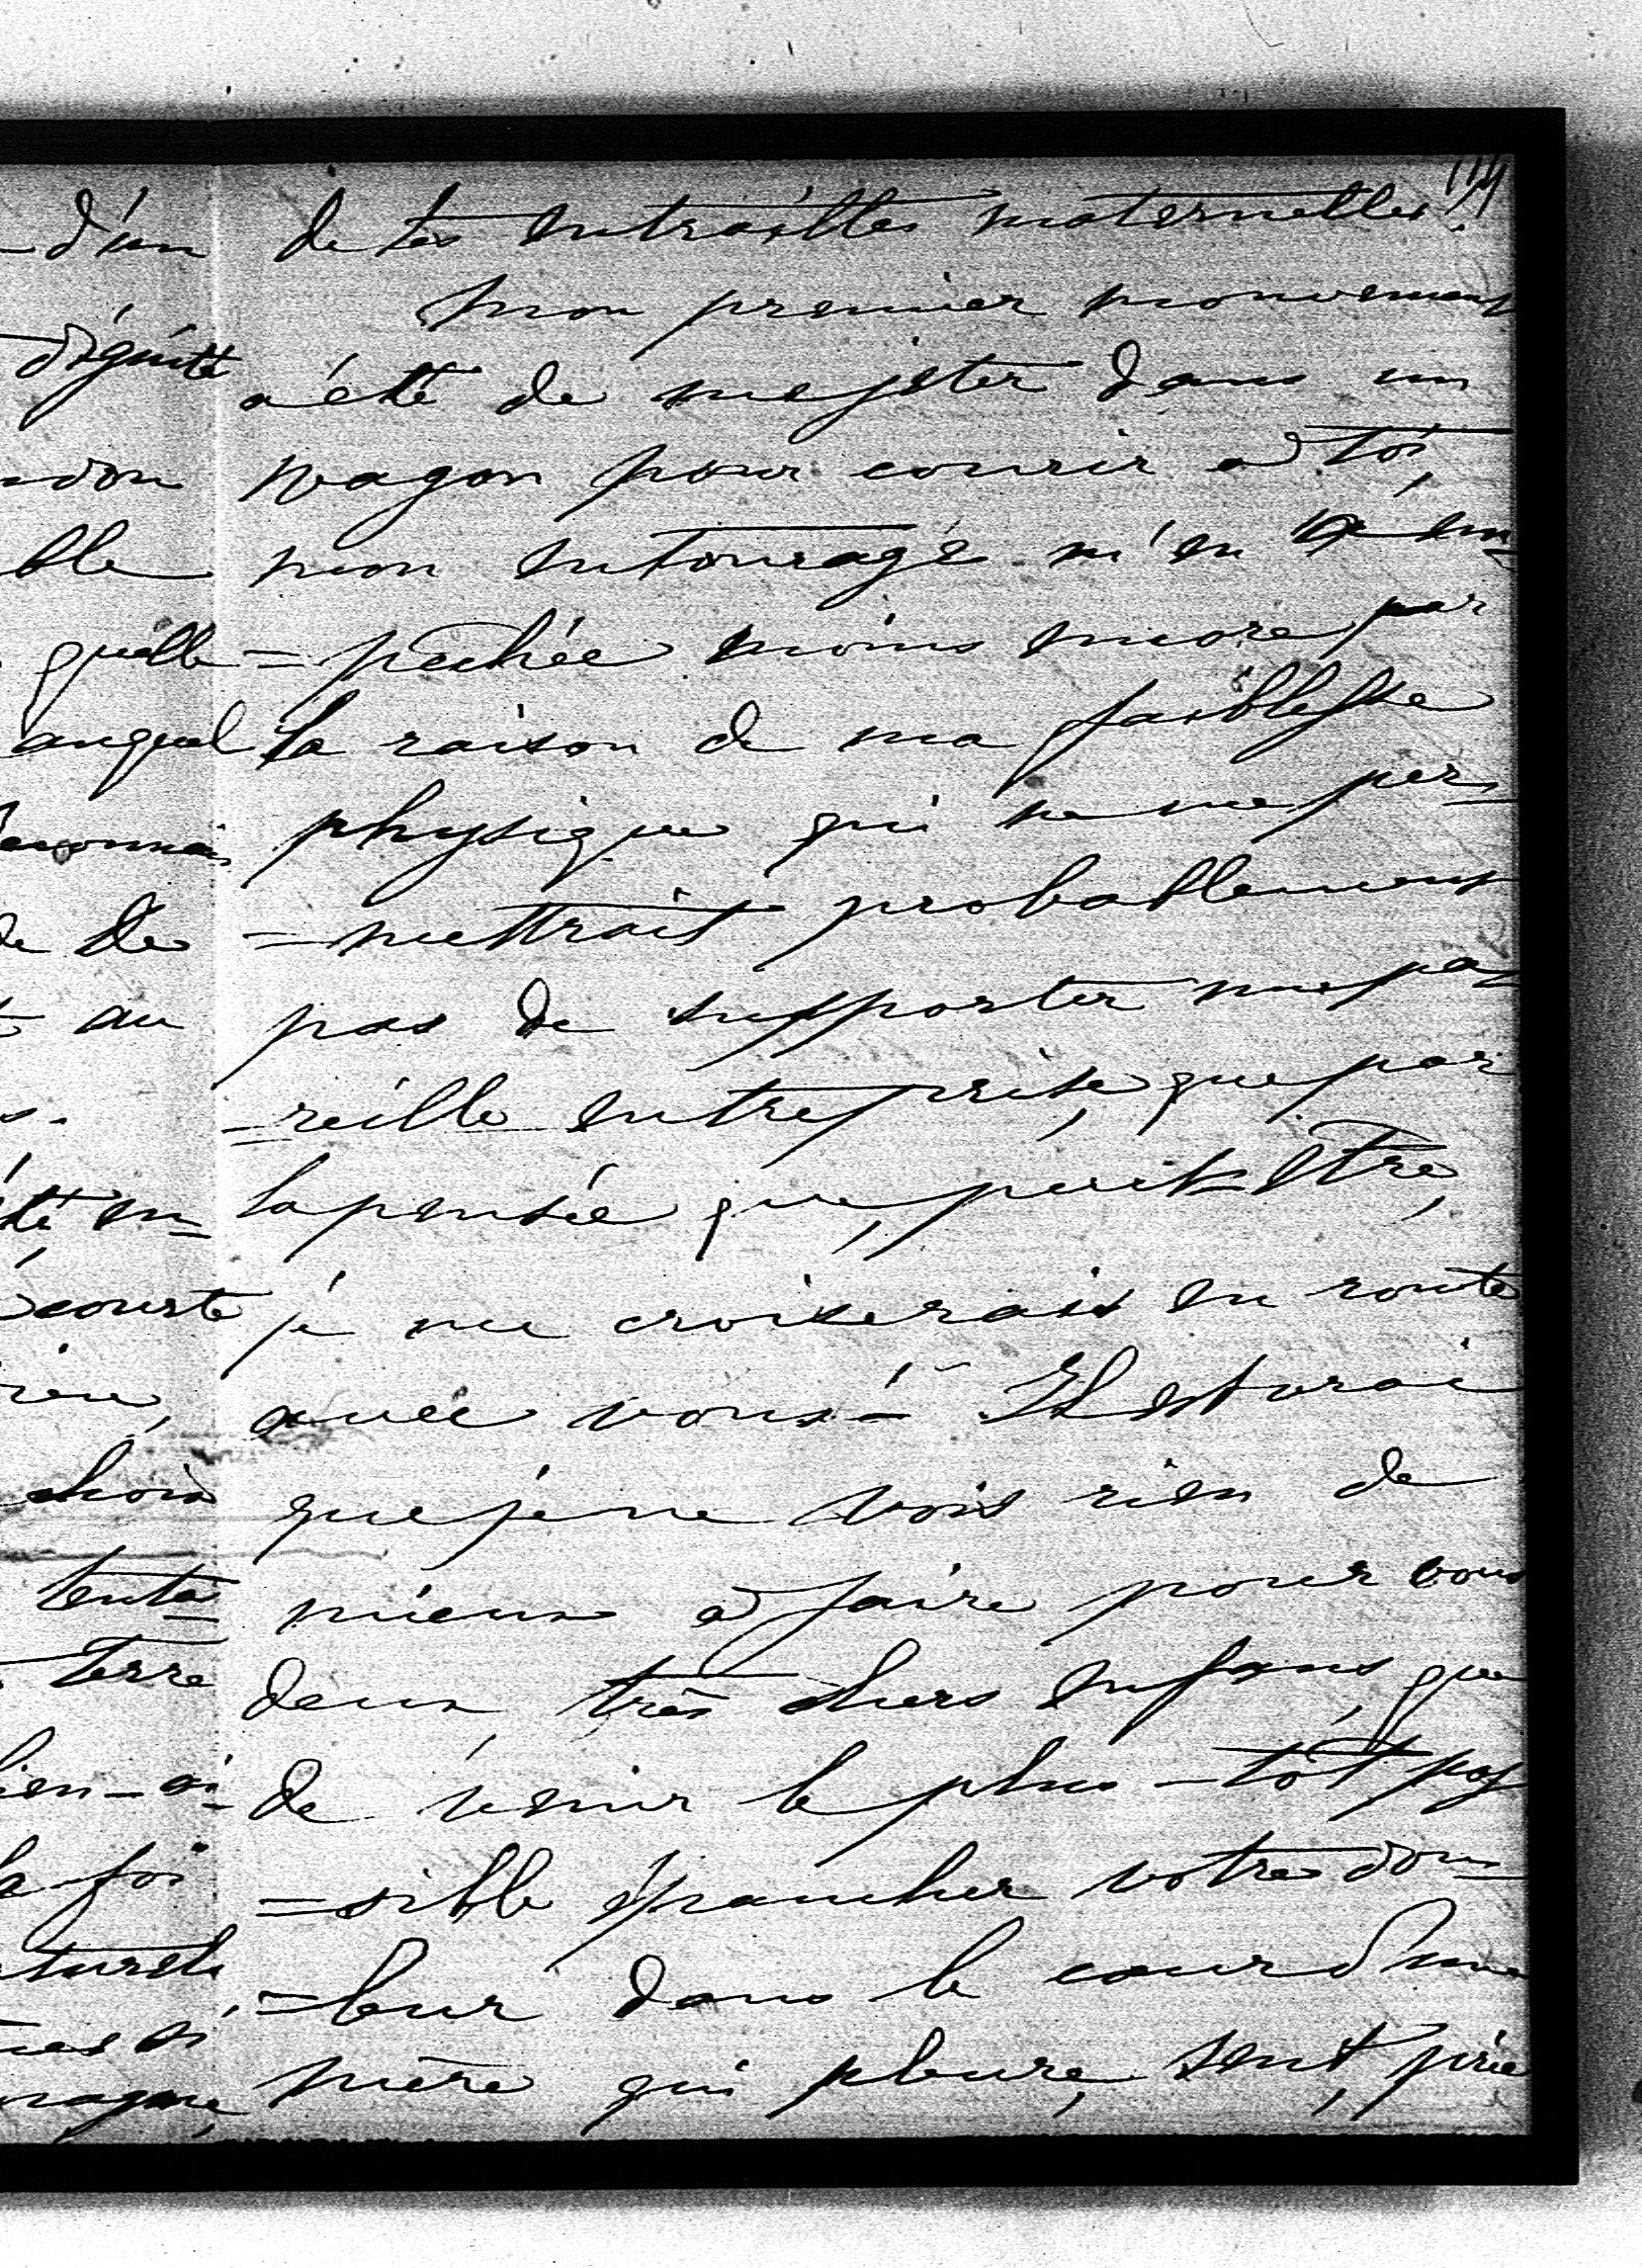 114
de tes entrailles maternelles!
Mon premier mouvement
a été de me jeter dans un
wagon pour courir à toi,
mon entourage m'en a em-
=pêchée moins encore par
la raison de ma faiblesse
physique qui ne me per=
=mettrait probablement
pas de supporter une pa-
=reille entreprise, que par
la pensée que, peut-être,
je me croiserais en route
avec vous - Il est vrai
que je ne vois rien de
mieux à faire pour vous
deux, très chers enfans, que
de venir le plus-tôt pos
=sible épancher votre dou=
=leur dans le cœur d'une
mère qui pleure, sent, prie
d'un
dignité
ble
qu'elle
auquel
de
au
s.
courte
choix
tenta=
terre
la foi